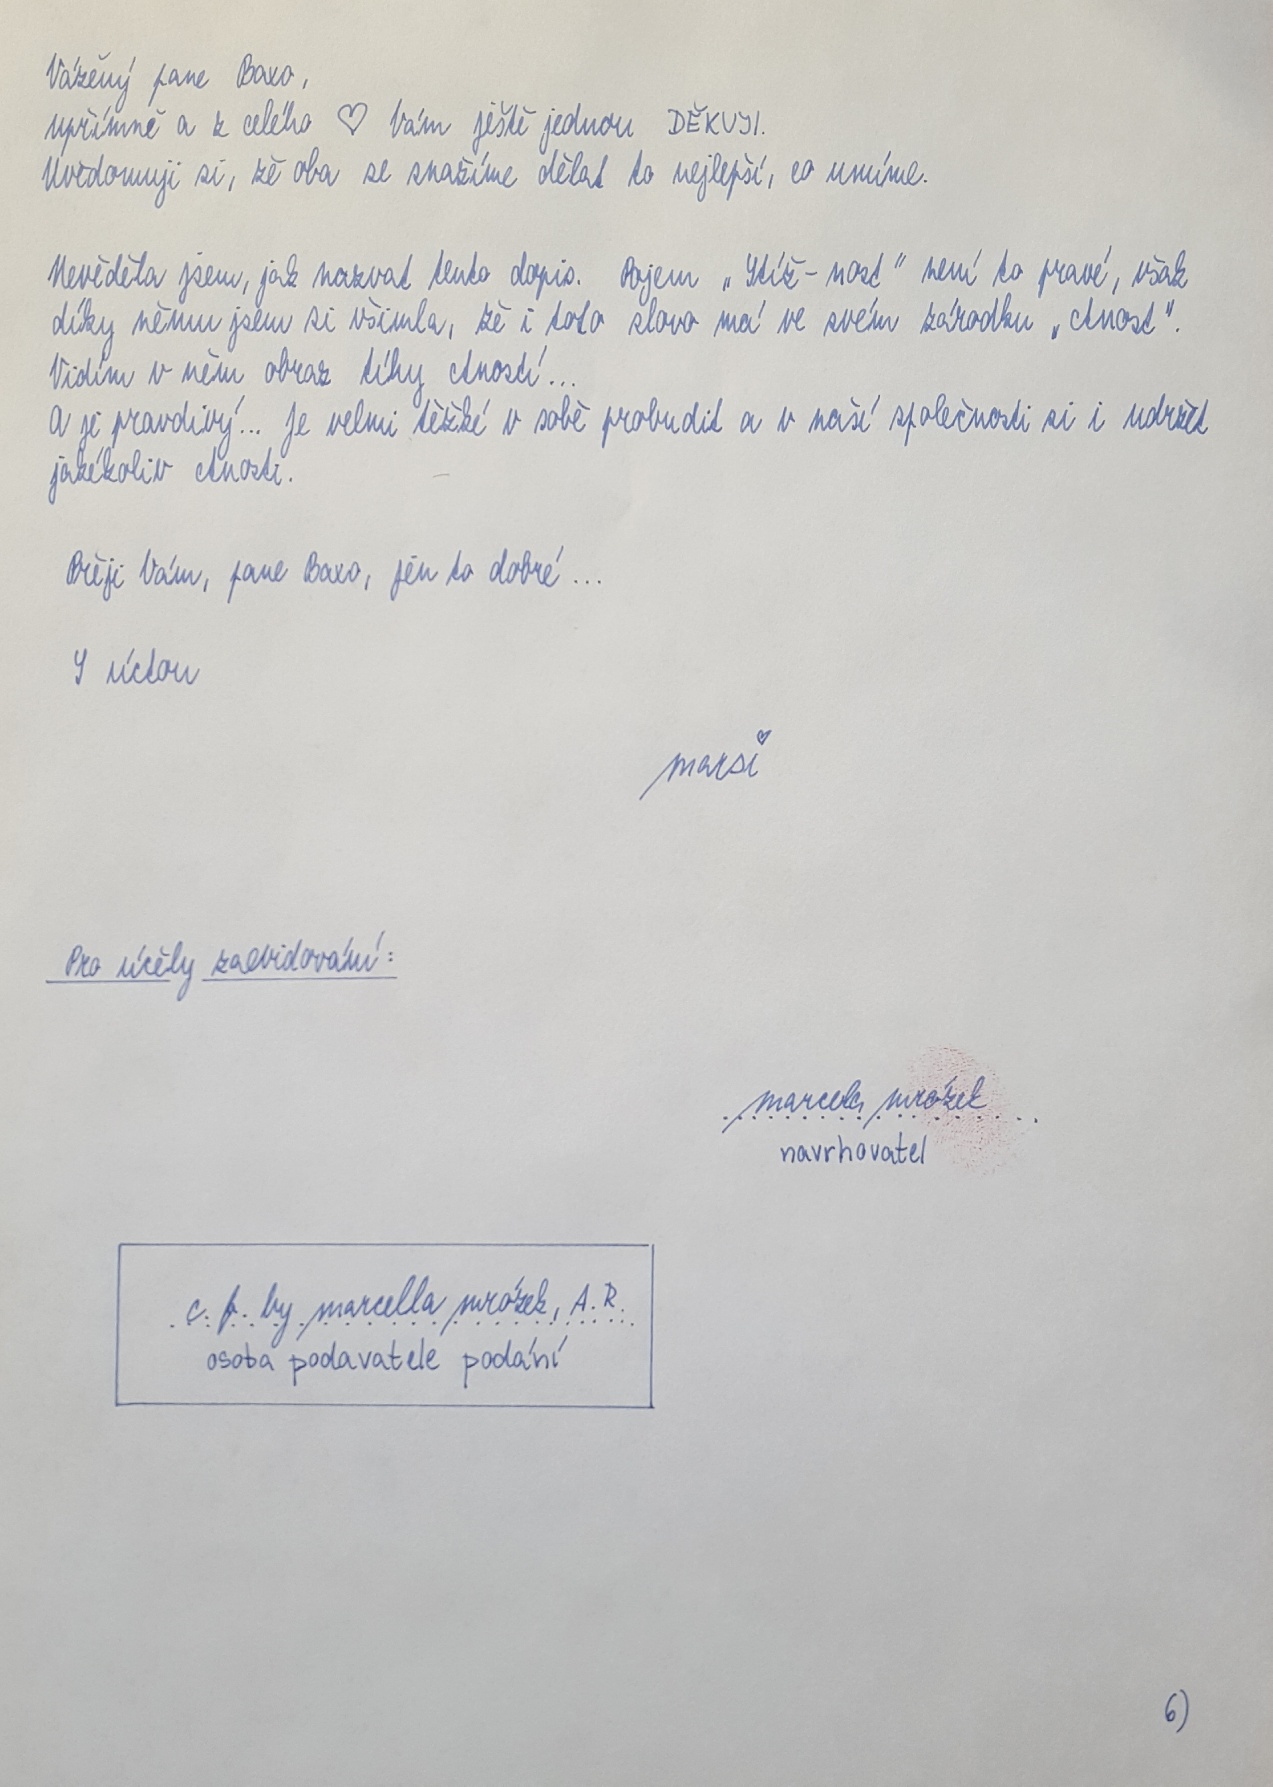 Vážěný pane Baxo,
upřímně a z celého ♡ Vám ještě jednou DĚKUJI.
Uvědomuji si, žě oba se snažíme dělat to nejlepší, co umíme.
Nevěděla jsem, jak nazvat tento dopis. Pojem „Stíž-nost" není to pravé, však
díky němu jsem si všimla, žě i toto slovo má ve svém zárodku „ctnost".
Vidím v něm obraz tíhy ctností...
A je pravdivý... Je velmi těžké v sobě probudit a v naší společnosti si i udržet
jakékoliv ctnosti.
Přeji Vám, pane Baxo, jen to dobré...
S úctou
marsi
Pro účely zaevidování:
marcela mrózek
navrhovatel
c. p. by marcella mrózek, A.R.
osoba podavatele podání
6)